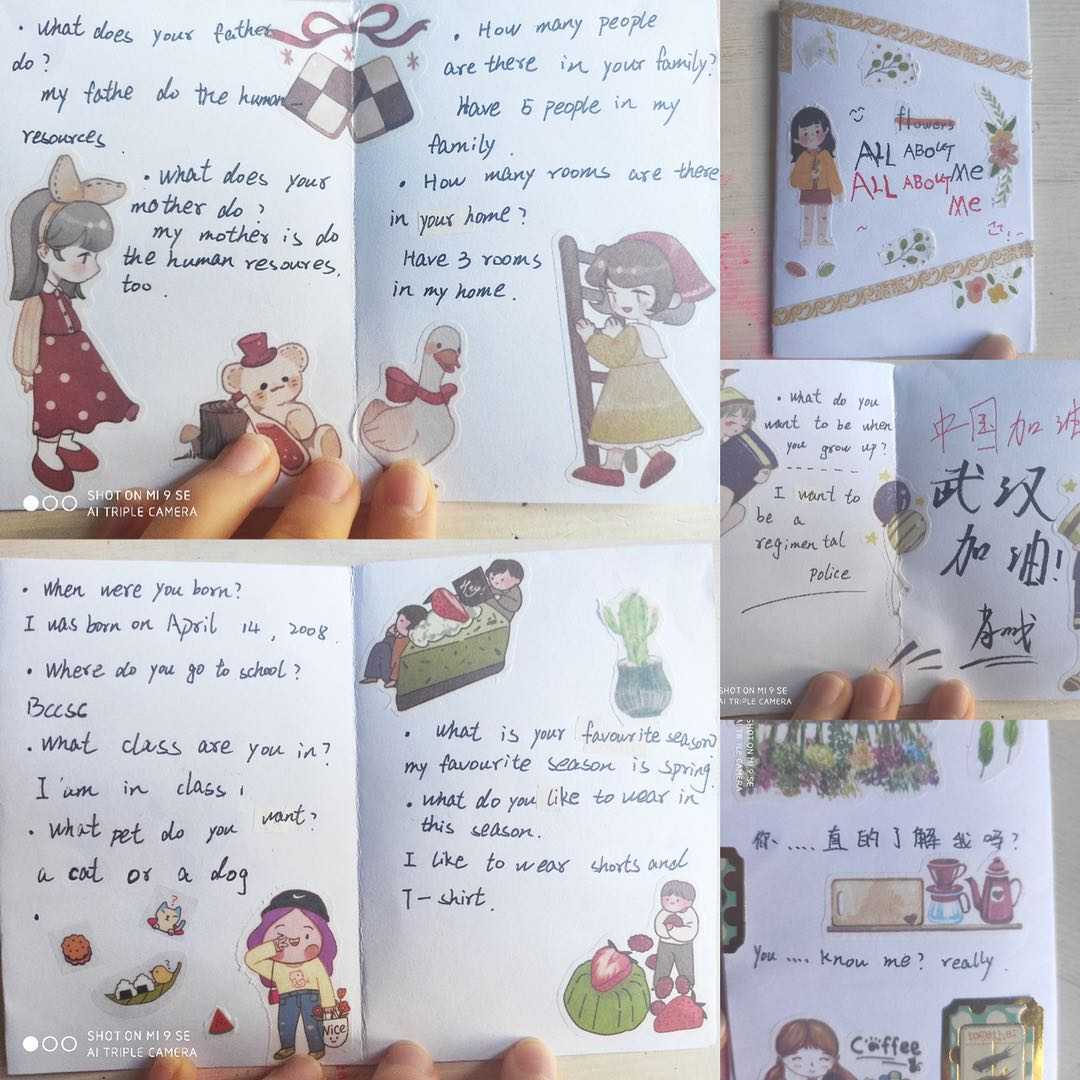 • What does your father
do?
my fathe do the human
resources.
• What does your
mother do?
my mother is do
the human resoures,
too.
• How many people
are there in your family?
Have 5 people in my
family.
• How many rooms are there
in your home?
Have 3 rooms
in my home.
SHOT ON MI 9 SE
AI TRIPLE CAMERA
flowers
ALL ABOUT
Me
ALL ABOUT
Me
• What do you
want to be when
you grow up?
I want to
be a
regimental
police
中国加油
武汉
加油!
SHOT ON MI 9 SE
AI TRIPLE CAMERA
• When were you born?
I was born on April 14, 2008.
• Where do you go to school?
BCCSC
• What class are you in?
I'am in class 1
• What pet do you want?
a cat or a dog
•
Nice
SHOT ON MI 9 SE
AI TRIPLE CAMERA
• What is your favourite season
my favourite season is spring.
• What do you like to wear in
this season.
I like to wear shorts and
T-shirt.
SHOT ON MI 9 SE
AI TRIPLE CAMERA
你.....真的了解我吗?
You .... know me? really.
Coffee
together